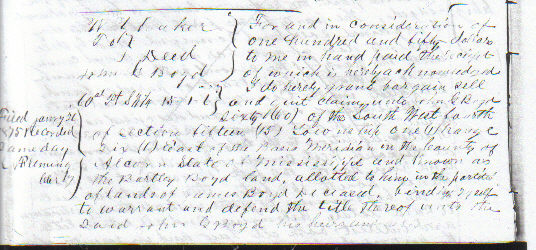 W L Baker
To
Deed
John G Boyd
For and in consideration of
one hundred and fifty dollars
to me in hand paid the receipt
of which is hereby acknowledged
I do hereby grant bargain sell
and quit claim unto John G Boyd
Sixty (60) of the South West fourth
of Section fifteen (15) Township one (1) Range
Six (6) East of the Basis Meridian in the County of
Alcorn State of Mississippi and known as
the Bartley Boyd land, allotted to him in the partition
of lands of James Boyd deceased,
to warrant and defend the title thereof unto the
Said John G Boyd his heirs
Filed Jany 26
1875 Recorded
Same day
Fleming
Clerk